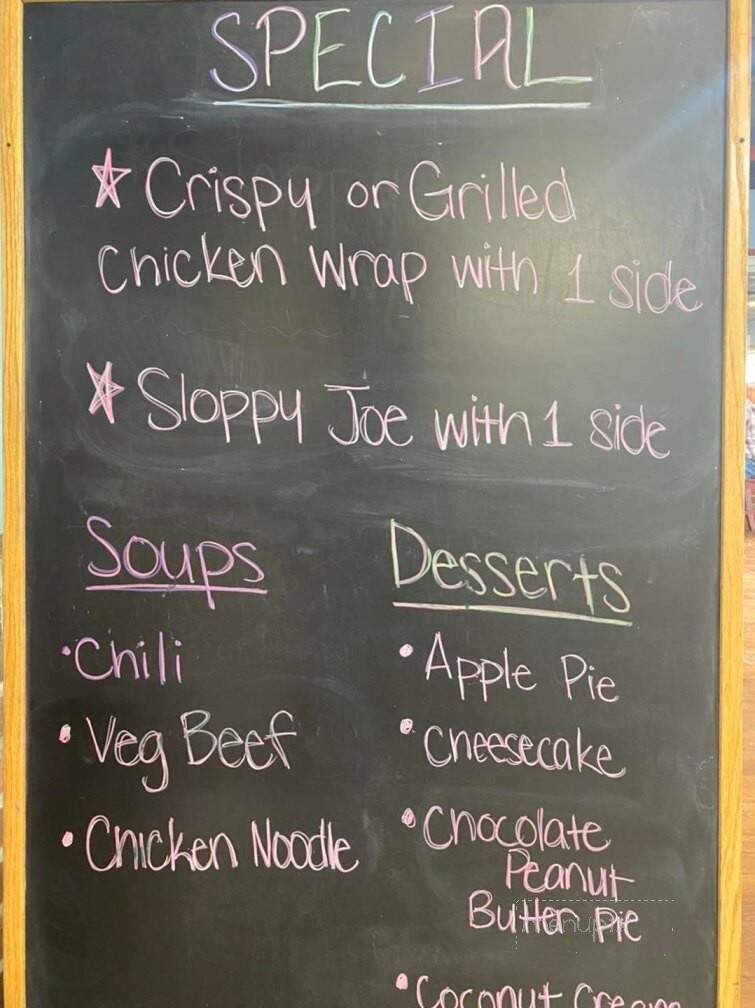 SPECIAL
☆ Crispy or Grilled
Chicken Wrap with 1 side
☆ Sloppy Joe with 1 side
Soups
• Chili
• Veg Beef
• Chicken Noodle
Desserts
• Apple Pie
• Cheesecake
• Chocolate
Peanut
Butter Pie
• Coconut Cream